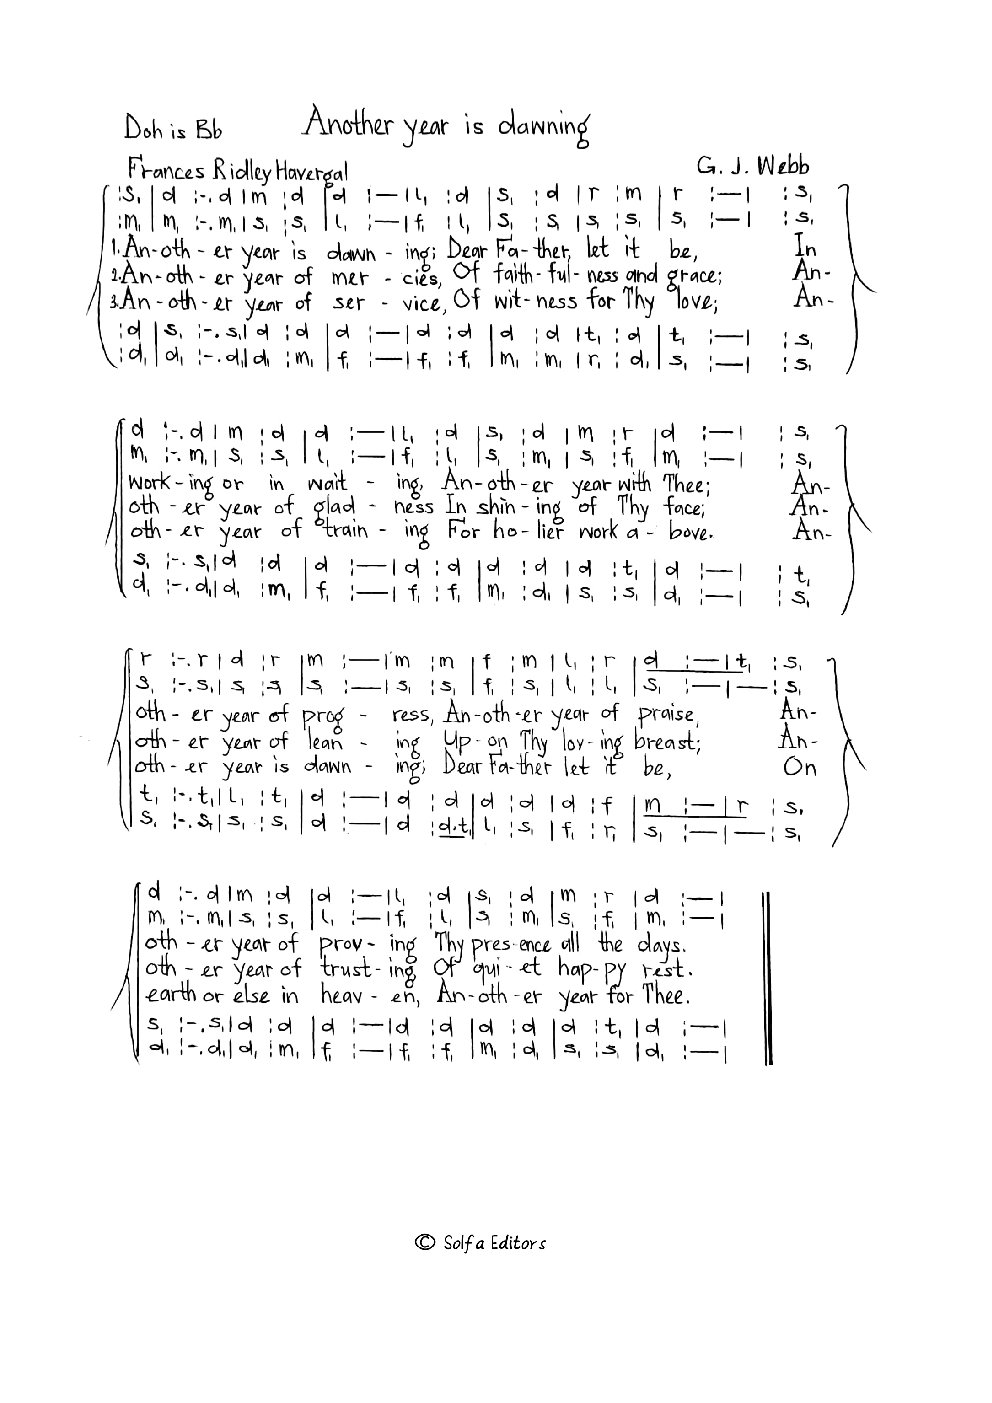 Doh is Bb Another year is dawning
Frances Ridley Havergal G. J. Webb
:s, | d :-. d | m :d | d :— | l, :d | s, :d | r :m | r :— | :s,
:m, | m, :-. m, | s, :s, | l, :— | f, :l, | s, :s, | s, :s, | s, :— | :s,
1.An-oth-er year is dawn-ing; Dear Fa-ther, let it be, In
2.An-oth-er year of mer-cies, Of faith-ful-ness and grace; An-
3.An-oth-er year of ser-vice, Of wit-ness for Thy love; An-
:d | s, :-. s, | d :d | d :— | d :d | d :d | t, :d | t, :— | :s,
:d, | d, :-. d, | d, :m, | f, :— | f, :f, | m, :m, | r, :d, | s, :— | :s,
d :-. d | m :d | d :— | l, :d | s, :d | m :r | d :— | :s,
m, :-. m, | s, :s, | l, :— | f, :l, | s, :m, | s, :f, | m, :— | :s,
work-ing or in wait-ing, An-oth-er year with Thee; An-
oth-er year of glad-ness In shin-ing of Thy face; An-
oth-er year of train-ing For ho-lier work a-bove. An-
s, :-. s, | d :d | d :— | d :d | d :d | d :t, | d :— | :t,
d, :-. d, | d, :m, | f, :— | f, :f, | m, :d, | s, :s, | d, :— | :s,
r :-. r | d :r | m :— | m :m | f :m | l, :r | d :— | t, :s,
s, :-. s, | s, :s, | s, :— | s, :s, | f, :s, | l, :l, | s, :— | — :s,
oth-er year of prog-ress, An-oth-er year of praise, An-
oth-er year of lean-ing Up-on Thy lov-ing breast; An-
oth-er year is dawn-ing; Dear Fa-ther let it be, On
t, :-. t, | l, :t, | d :— | d :d | d :d | d :f | m :— | r :s,
s, :-. s, | s, :s, | d :— | d :d.t, | l, :s, | f, :r, | s, :— | — :s,
d :-. d | m :d | d :— | l, :d | s, :d | m :r | d :— |
m, :-. m, | s, :s, | l, :— | f, :l, | s, :m, | s, :f, | m, :— |
oth-er year of prov-ing Thy pres-ence all the days.
oth-er year of trust-ing Of qui-et hap-py rest.
earth or else in heav-en, An-oth-er year for Thee.
s, :-. s, | d :d | d :— | d :d | d :d | d :t, | d :— |
d, :-. d, | d, :m, | f, :— | f, :f, | m, :d, | s, :s, | d, :— |
© Solfa Editors